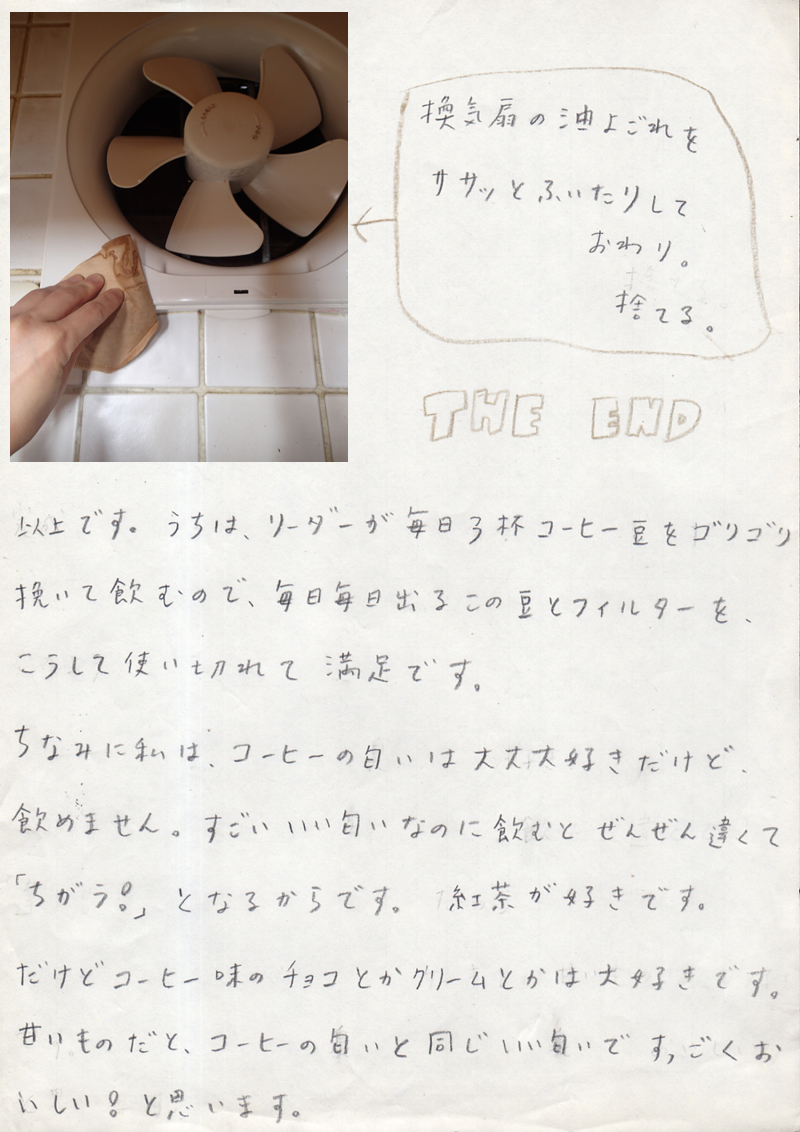 換気扇の油よごれを
ササッとふいたりして
おわり。
捨てる。
THE END
以上です。うちは、リーダーが毎日3杯コーヒー豆をゴリゴリ
挽いて飲むので、毎日毎日出るこの豆とフィルターを、
こうして使い切れて満足です。
ちなみに私は、コーヒーの匂いは大大大好きだけど、
飲めません。すごいいい匂いなのに飲むとぜんぜん違くて
「ちがう!」となるからです。紅茶が好きです。
だけどコーヒー味のチョコとかクリームとかは大好きです。
甘いものだと、コーヒーの匂いと同じいい匂いですっごくお
いしい!と思います。